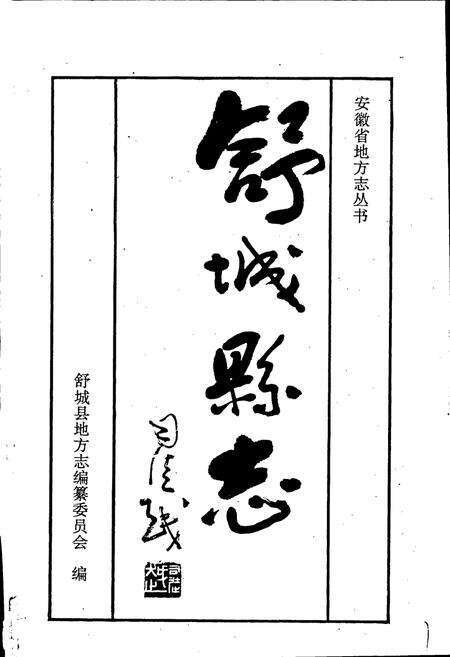 安徽省地方志丛书
舒城縣志
司徒越
舒城县地方志编纂委员会 编